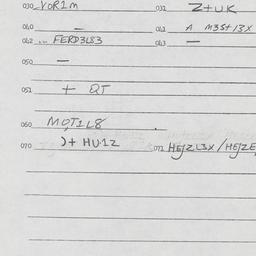 030 VOR1M 032 Z+UK
040 — 041 A M3St 13X
042 ... FERD3L83 043 —
050 —
051 + QT
060 MOT1L8
070 )+ HU·1Z 071 HEJZL3X/HEJZE